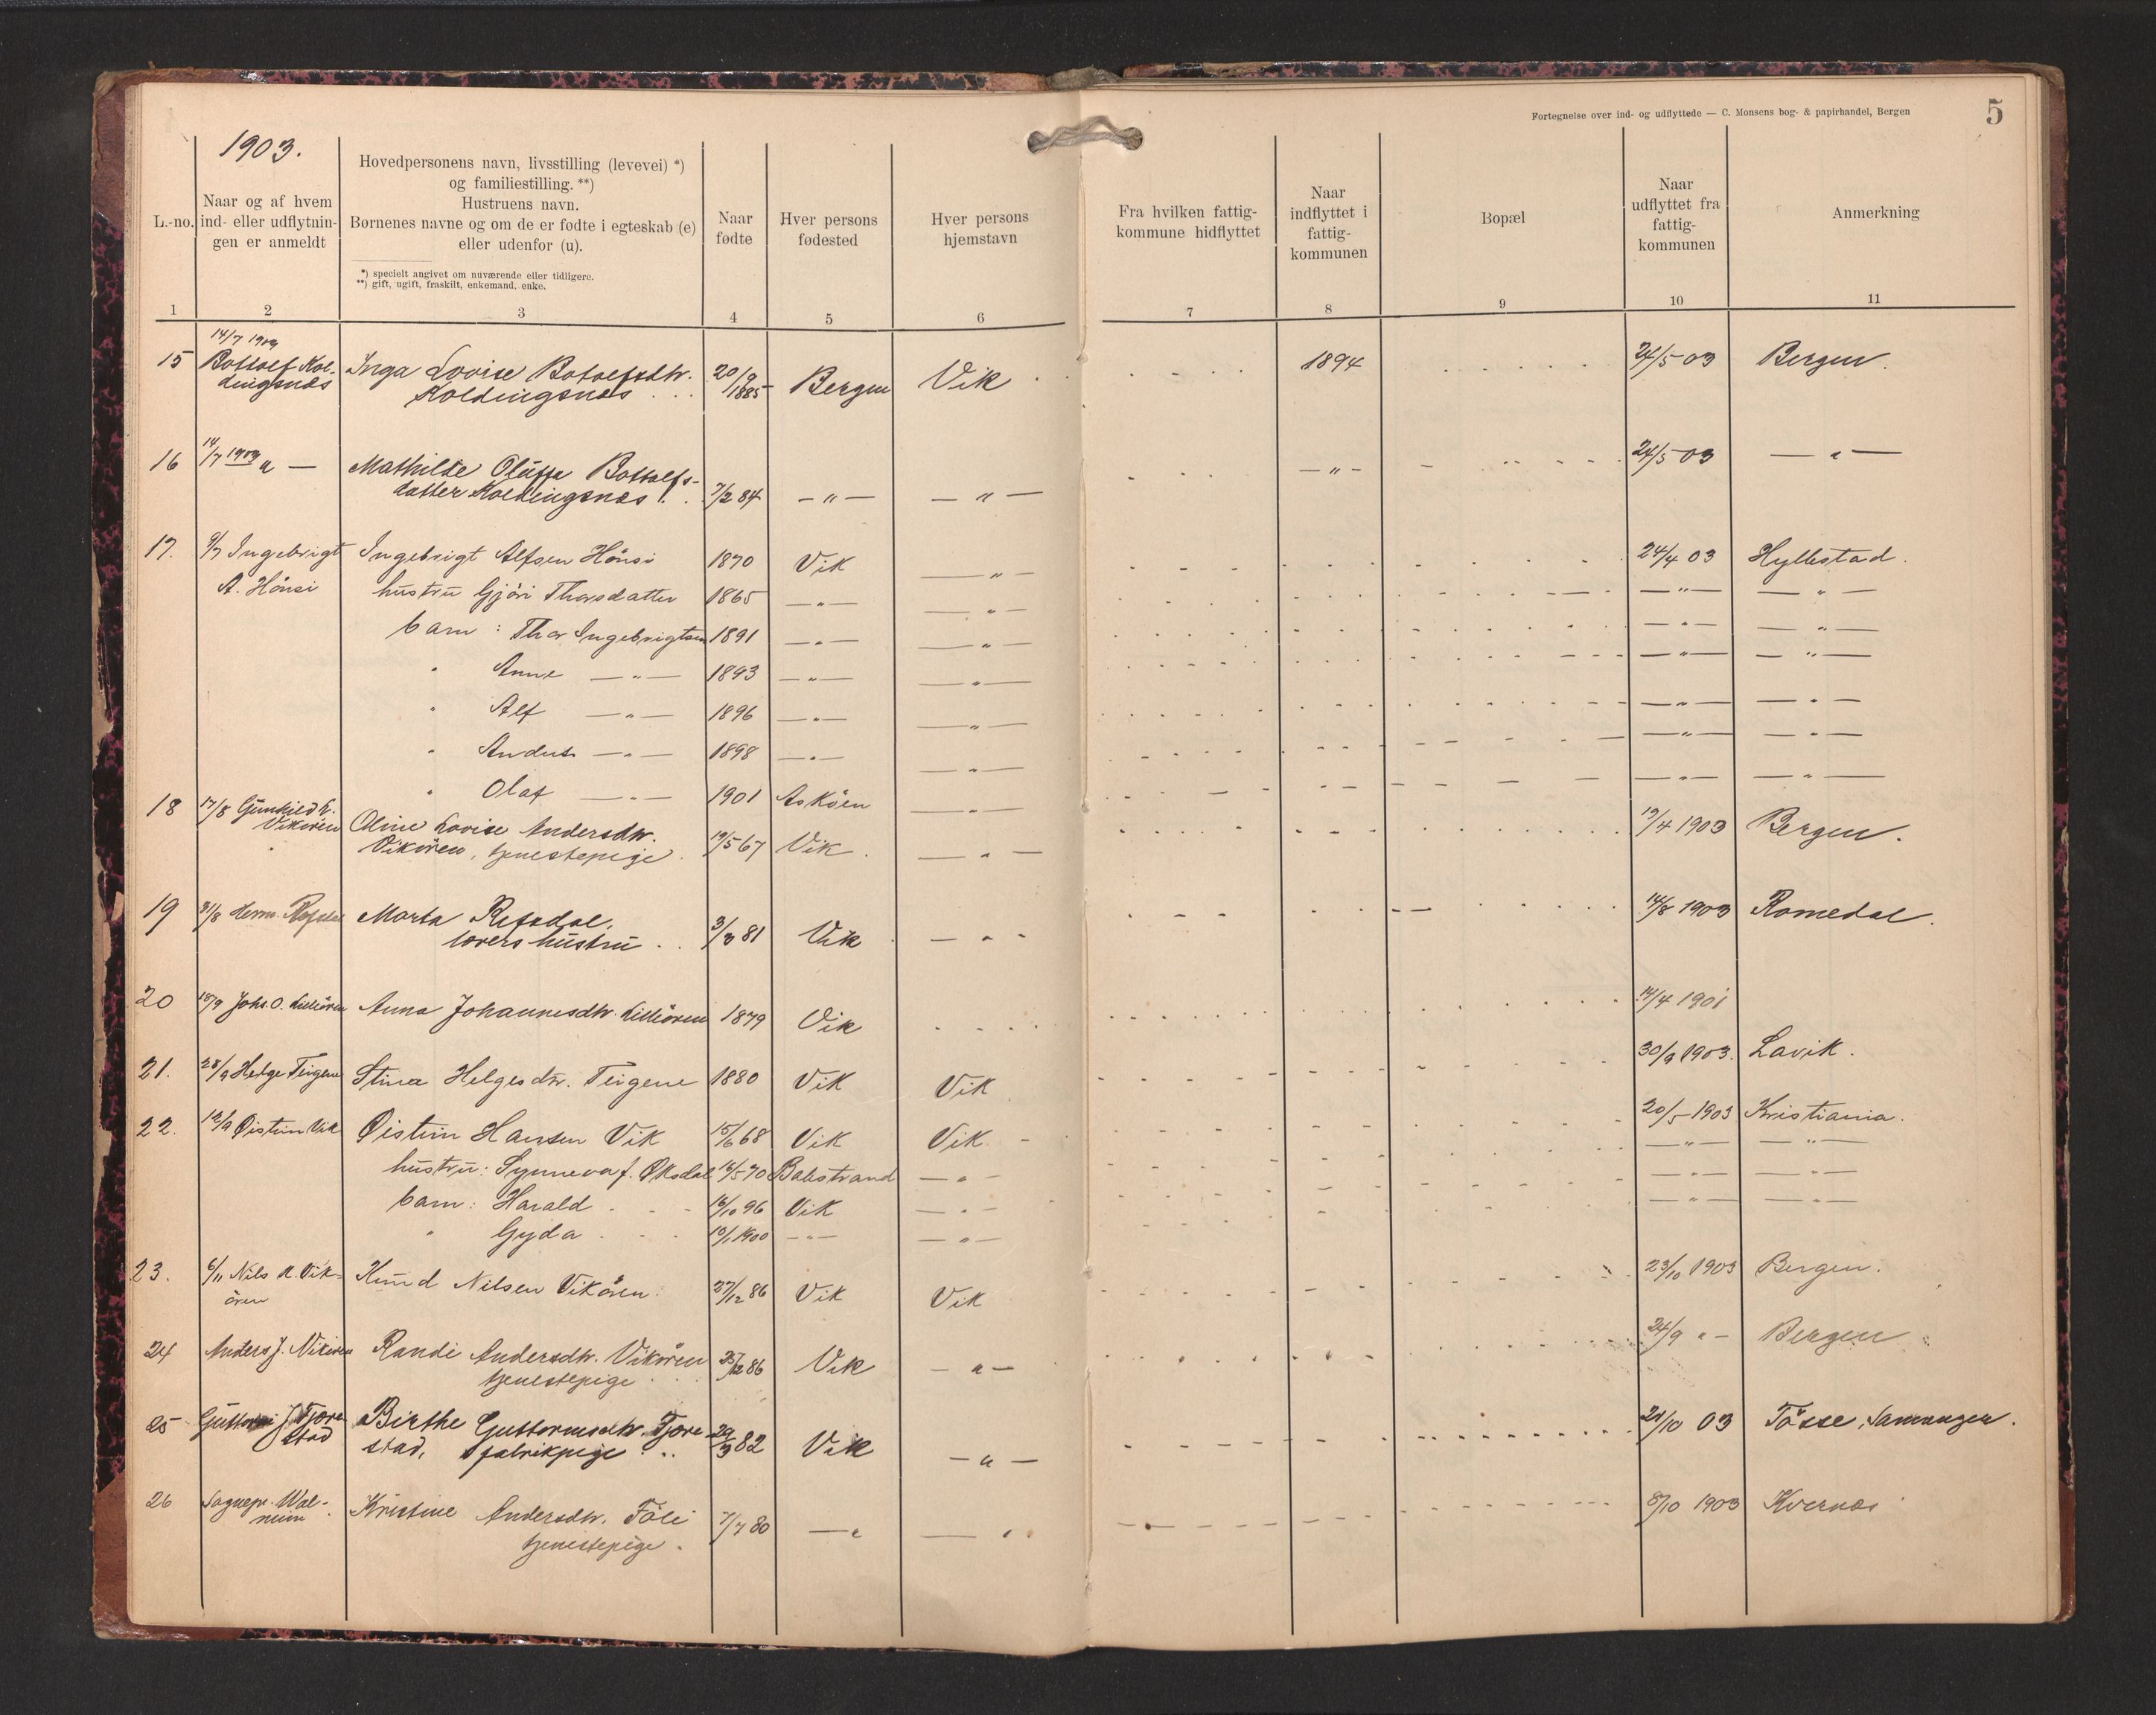 Fortegnelse over ind- og udflyttede — C. Monsens bog- & papirhandel, Bergen
5
1903.
L.-no.
Naar og af hvem
ind- eller udflytnin-
gen er anmeldt
Hovedpersonens navn, livsstilling (levevei) *)
og familiestilling. **)
Hustruens navn.
Børnenes navne og om de er fødte i egteskab (e)
eller udenfor (u).
*) specielt angivet om nuværende eller tidligere.
**) gift, ugift, fraskilt, enkemand, enke.
Naar
fødte
Hver persons
fødested
Hver persons
hjemstavn
Fra hvilken fattig-
kommune hidflyttet
Naar
indflyttet i
fattig-
kommunen
Bopæl
Naar
udflyttet fra
fattig-
kommunen
Anmerkning
1 2 3 4 5 6 7 8 9 10 11
14/7 1903
15 Bottolf Kol- Inga Lovise Botolfsdtr. 20/9 Bergen Vik 1894 24/5 03 Bergen.
dingsnæs Koldingsnæs 1885
16 14/7 1903 " — Mathilde Bottolfs- 24/5 03 — " —
datter Koldingsnæs 7/2 84 — " — — " — — " —
17. 9/7 Ingebrigt Ingebrigt Alfsen Hönsi 1870 Vik — " — 24/4 03 Hyllestad.
A. Hönsi hustru Gjöri Thorsdatter 1865 — " — — " — — " — — " —
barn : Thor Ingebrigtsen 1891 — " — — " — — " — — " —
" Anne — " — 1893 — " — — " — — " — — " —
" Alf — " — 1896 — " — — " — — " — — " —
" Anders — " — 1898 — " — — " — — " — — " —
" Olaf — " — 1901 Asköen — " — — " — — " —
18 17/8 Gunhild Oline Lovise Andersdtr. 19/4 1903 Bergen.
Vikören Vikören, tjenestepige. 19/5 67 Vik. — " —
19 31/8 Herm. Refsdal Marta Refsdal, 3/3 81 Vik — " — 14/8 1903 Romedal.
lærers hustru
20 18/9 Johs. O. Lilleören Anna Johannesdtr. Lilleören 1879 Vik 14/4 1901
21. 28/9 Helge Teigene Stina Helgesdtr. Teigene 1880 Vik Vik 30/9 1903. Lavik.
22. 12/9 Øistein Vik Øistein Hansen Vik 15/6 68 Vik Vik 20/5 1903 Kristiania.
hustru: Synneva f. Øksdal 16/5 70 Balestrand — " — — " — — " —
barn: Harald 16/10 96 Vik — " — — " — — " —
" Gyda 10/1 1900 — " — — " — — " — — " —
23. 6/11 Nils K. Vik- Knud Nilsen Vikören. 27/12 86 Vik Vik 23/10 1903 Bergen.
ören
24 Anders J. Vikören Randi Andersdtr. Vikören 86 Vik — " — 24/9 " — Bergen
tjenestepige
25 Guttorm J. Tjøre- Birthe Guttormsdtr. Tjøre- 29/3 82 Vik — " — 21/10 03 Tösse, Samnanger.
stad stad, fabrikpige
26 Sognepr. Wal- Kristine Andersdtr. Föli 7/7 80 — " — " 8/10 1903 Kvernes
num tjenestepige.